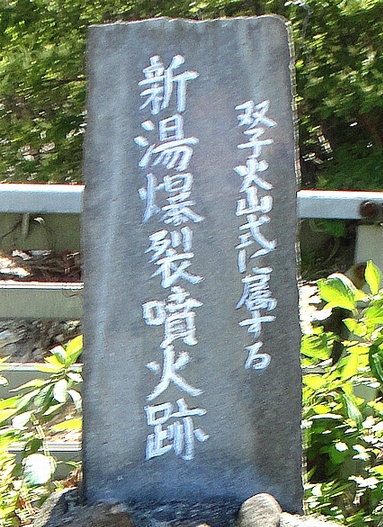 双子火山式に属する
新湯爆裂噴火跡